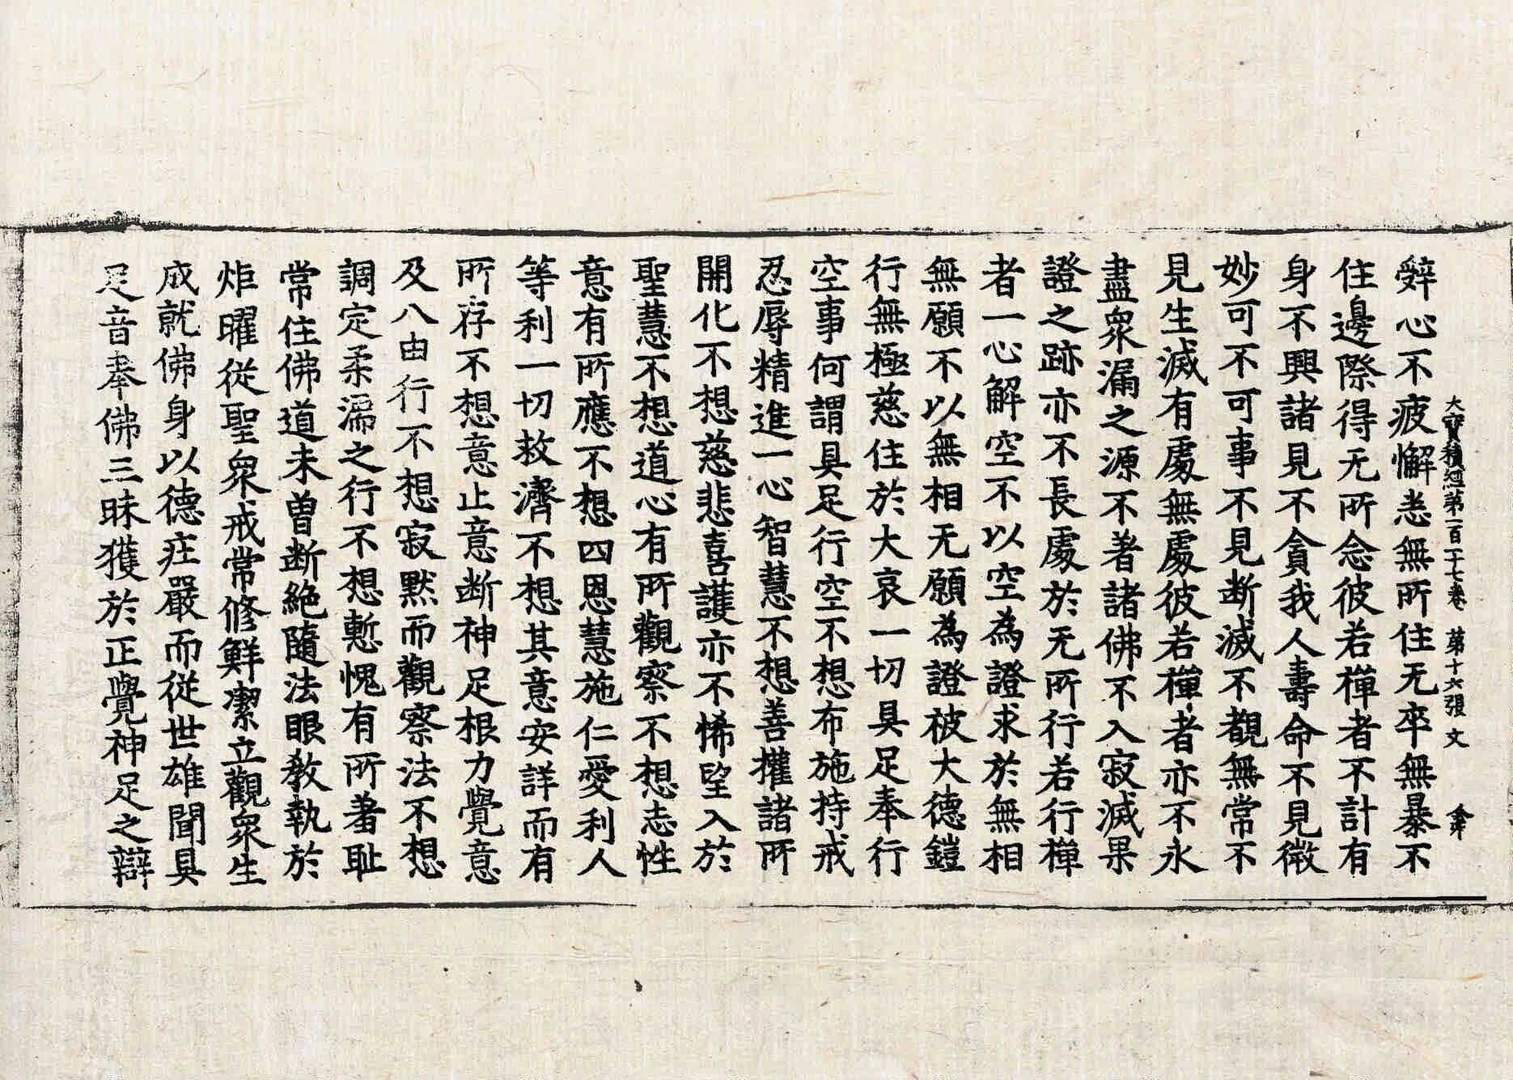 大寶積經第一百一十七卷 第十六張 文
辤心不疲懈悉無所住无卒無暴不
住邊際得无所念彼若禪者不計有
身不興諸見不貪我人壽命不見微
妙可不可事不見断滅不覩無常不
見生滅有處無處彼若禪者亦不永
盡衆漏之源不著諸佛不入寂滅果
證之跡亦不長處於无所行若行禪
者一心解空不以空為證求於無相
無願不以無相无願為證被大德鎧
行無極慈住於大哀一切具足奉行
空事何謂具足行空不想布施持戒
忍辱精進一心智慧不想善權諸所
開化不想慈悲喜護亦不悕望入於
聖慧不想道心有所觀察不想志性
意有所應不想四恩慧施仁愛利人
等利一切救濟不想其意安詳而有
所存不想意止意断神足根力覺意
及八由行不想寂黙而觀察法不想
調定柔濡之行不想慙愧有所著耻
常住佛道未曽断絶隨法眼教執於
炬曜從聖衆戒常修鮮潔立觀衆生
成就佛身以德庄嚴而従世雄聞具
足音奉佛三昧獲於正覺神足之辯